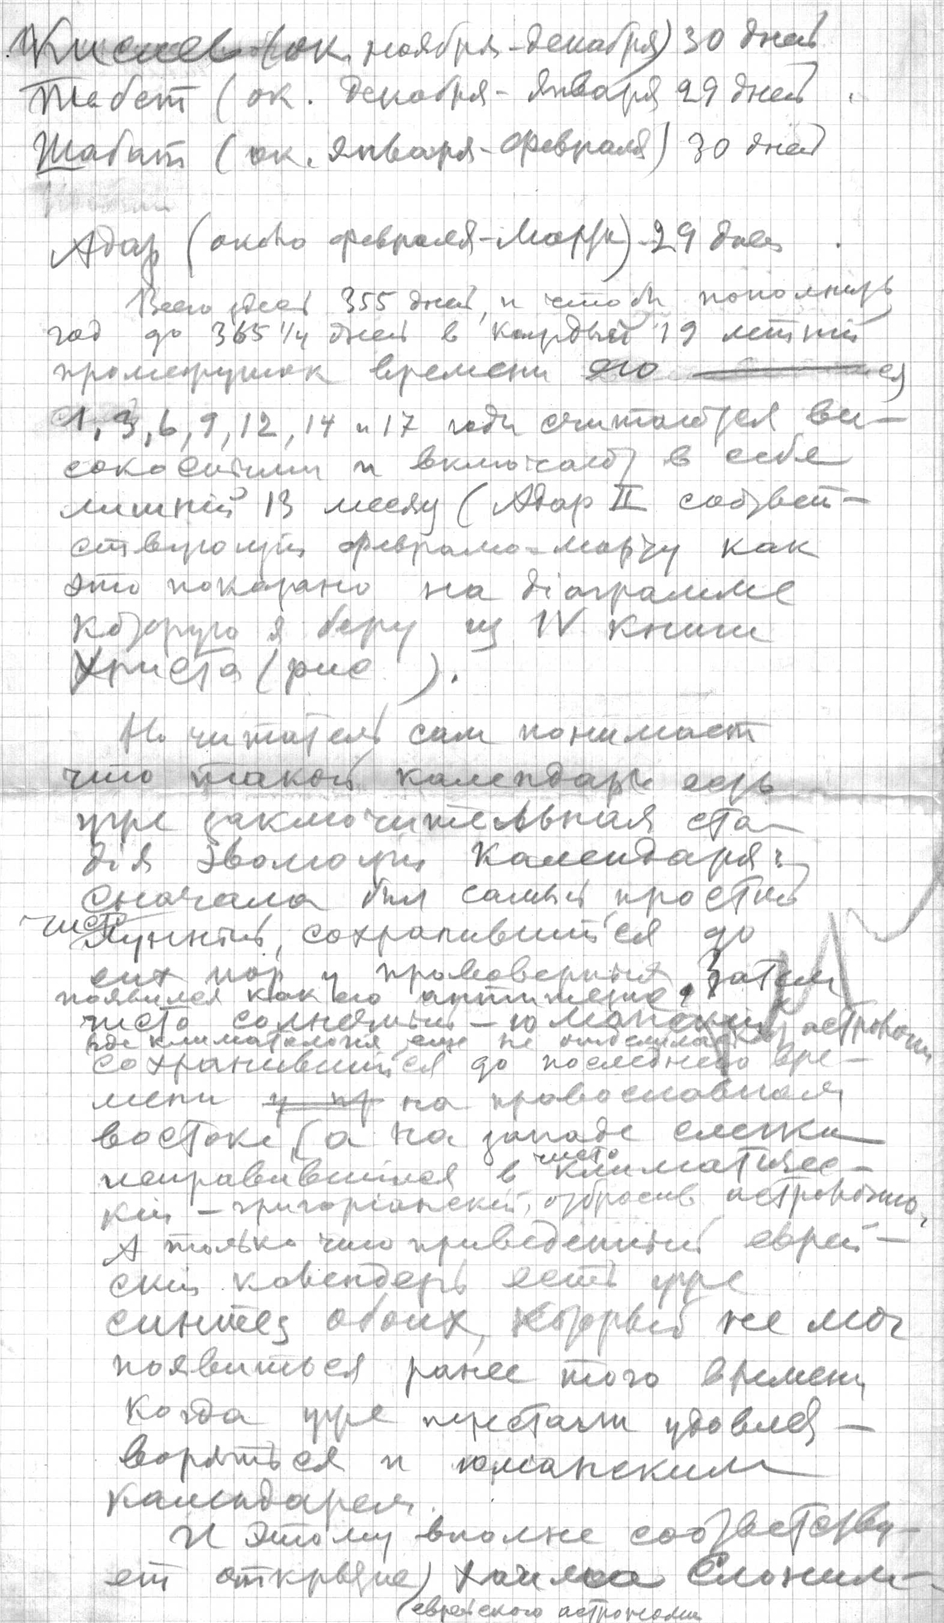 Кислев (ок. ноября-декабря) 30 дней
Табет (ок. декабря-января 29 дней.
Шабат (ок. января-февраля) 30 дней
Адар (около февраля-марта) 29 дней.
Всего дней 355 дней, и чтобы пополнить
год до 365 1/4 дней в каждый 19 летний
промежуток времени его
1, 3, 6, 9, 12, 14 и 17 годы считаются ви-
сокосными и включают в себе
лишний 13 месяц (Адар II соответ-
ствующий февралю-марту как
это показано на діаграмме
которую я беру из IV книги
Христа (рис ).
Но читатель сам понимает
что такой календарь есть
уже заключительная ста-
дія эволюции календаря:
сначала был самый простой
чисто
лунный, сохранившийся до
сих пор у правоверных, затем
появился как его антитезис,
чисто солнечный – юлианский
где климатология еще не отделилась астрономии
сохранившийся до последнего вре-
мени на православном
востоке (а на западе слегка
исправившийся в чисто климатичес-
кий – григоріанский, отбросив астрономію,
А только что приведенный еврей-
ский календарь есть уже
синтез обоих, который не мог
появиться ранее того времени
когда уже перестали удовлет-
воряться и юлианским
календарем.
И этому вполне соответству-
ет открытие Хаима Слоним-
(еврейского астронома